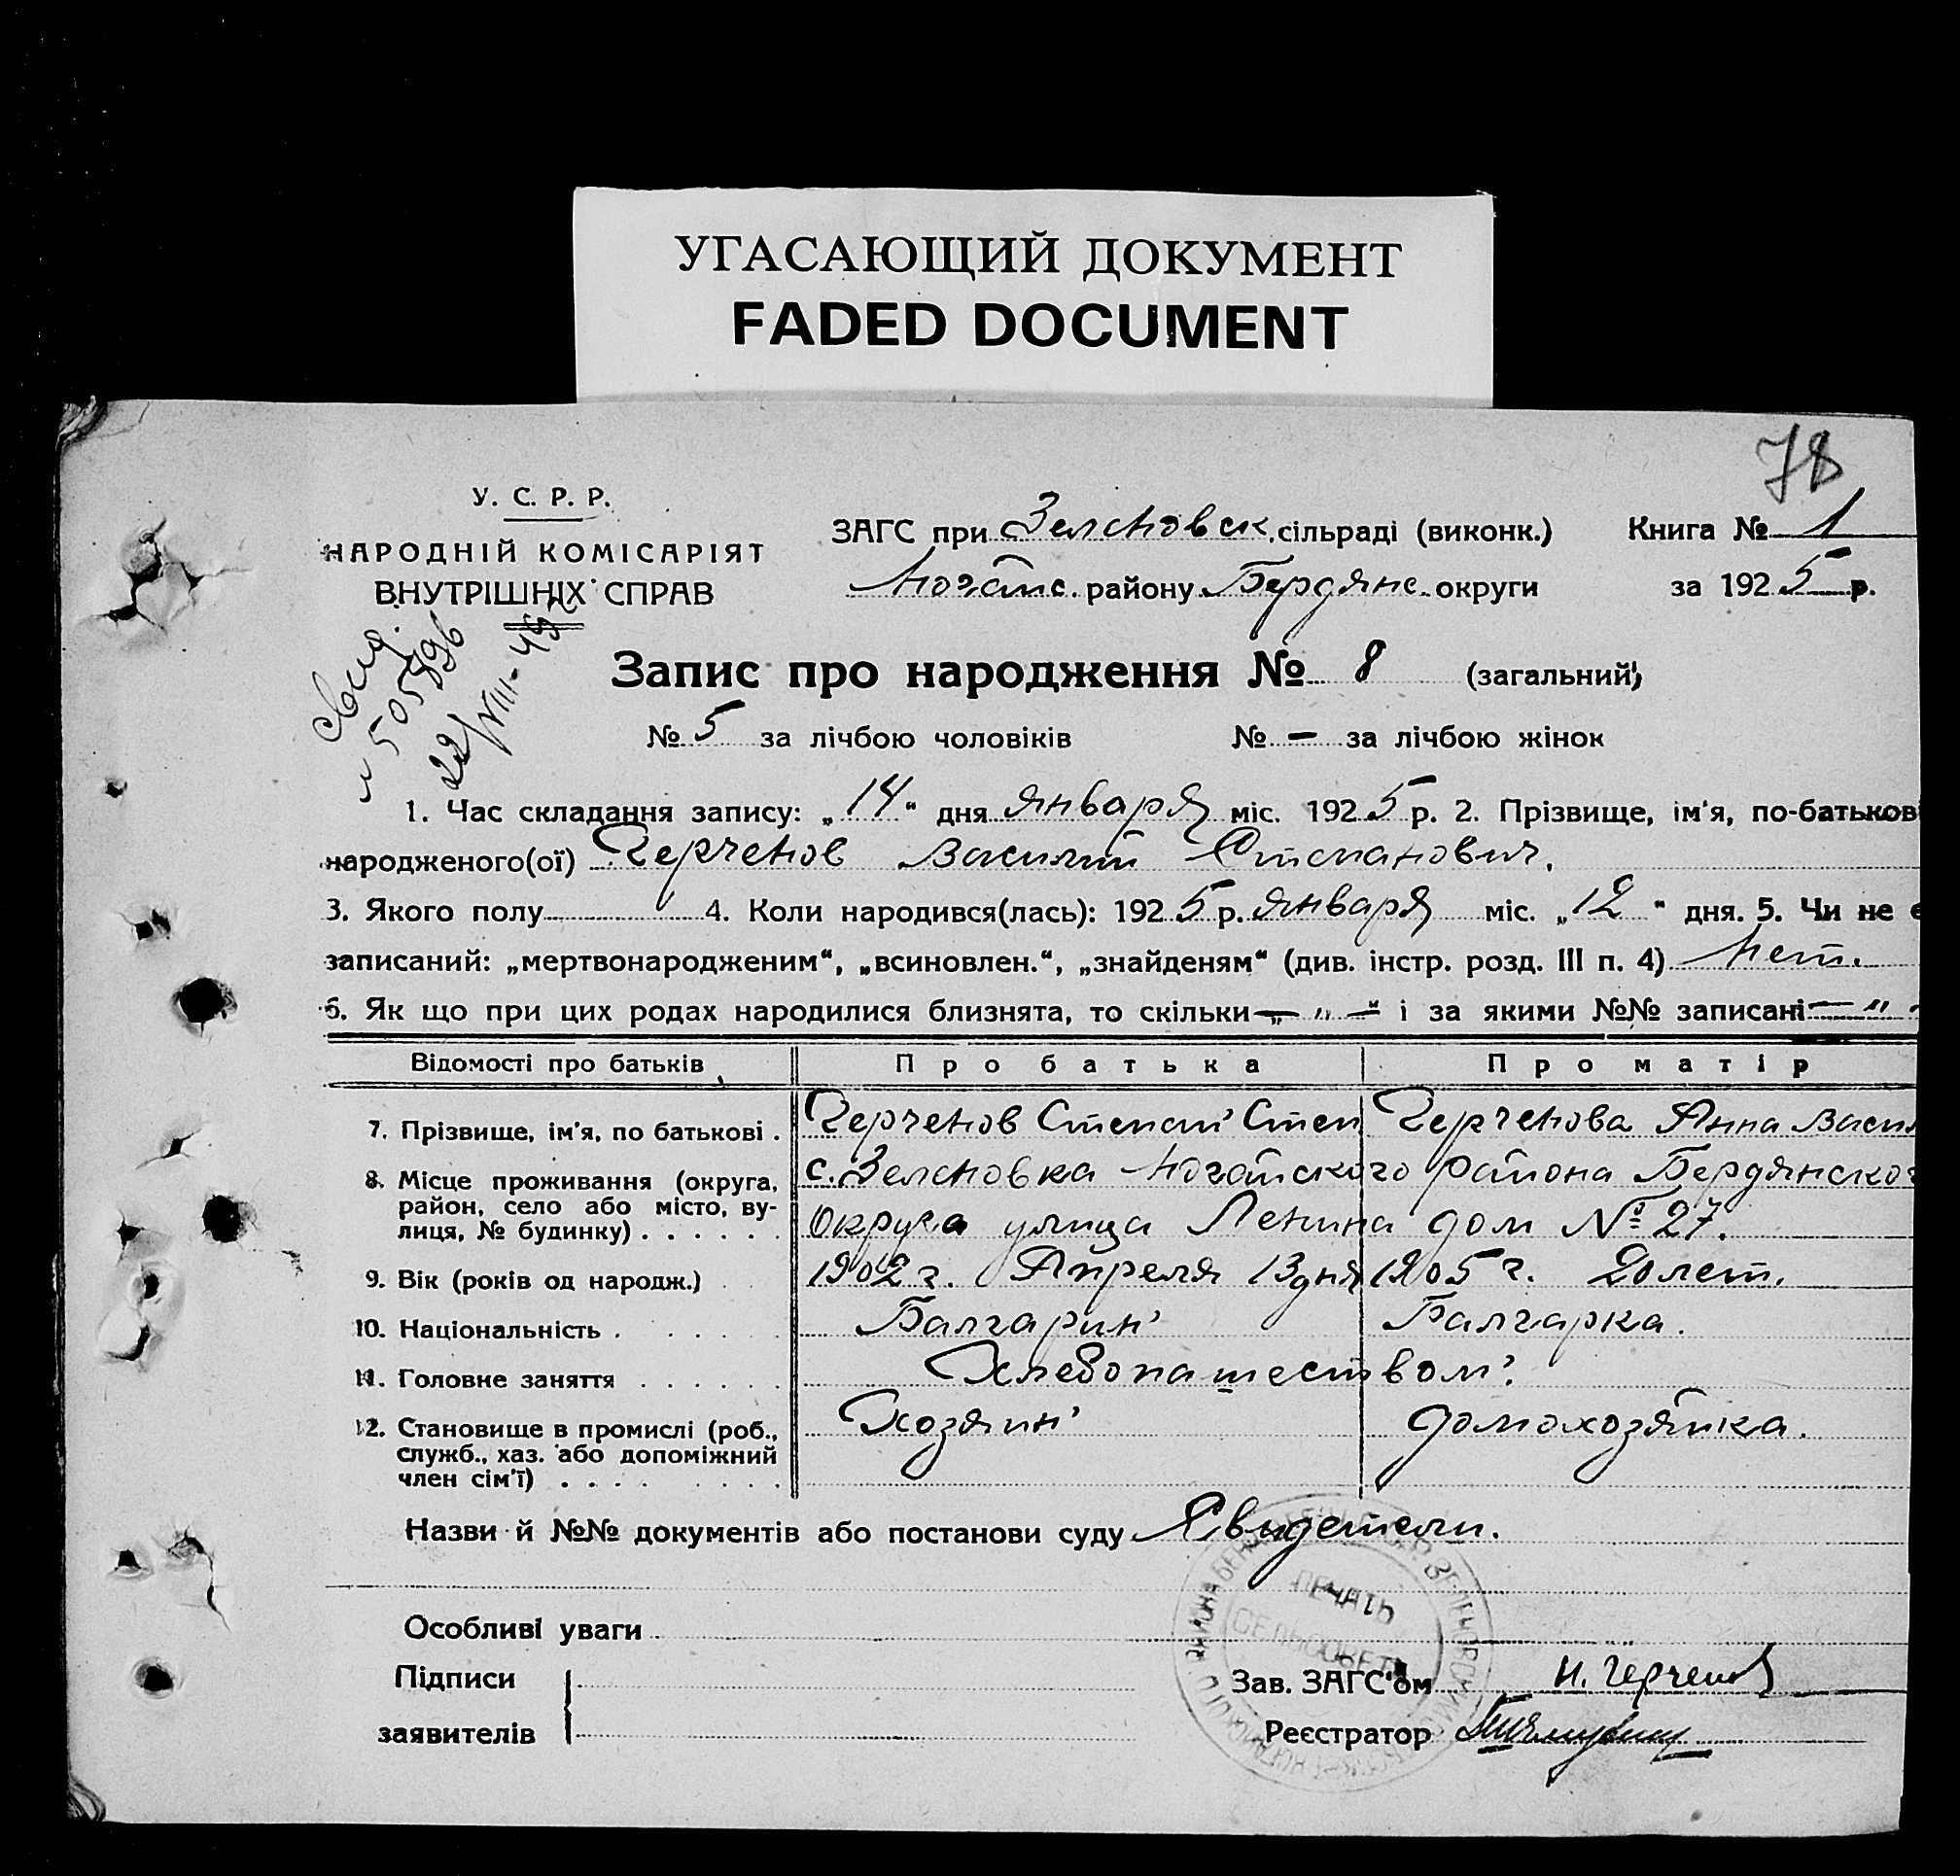 УГАСАЮЩИЙ ДОКУМЕНТ
FADED DOCUMENT
78
У. С. Р. Р.
НАРОДНІЙ КОМІСАРІЯТ
ВНУТРІШНІХ СПРАВ
ЗАГС при Зеленовск. сільраді (виконк.) Книга № 1
Ногайс. району Бердянс. округи за 1925 р.
свид.
505896
22/VIII-45
Запис про народження № 8 (загальний)
№ 5 за лічбою чоловіків № — за лічбою жінок
1. Час складання запису: „14“ дня января міс. 1925 р. 2. Прізвище, ім'я, по-батькові
народженого(ої) Герченов Василий Степанович.
3. Якого полу 4. Коли народився(лась): 1925 р. января міс. „12“ дня. 5. Чи не є
записаний: „мертвонародженим“, „всиновлен.“, „знайденям“ (див. інстр. розд. III п. 4) Нет.
6. Як що при цих родах народилися близнята, то скільки — „ — і за якими №№ записані — „ -
Відомості про батьків Про батька Про матір
7. Прізвище, ім'я, по батькові . Герченов Степан Степ Герченова Анна Васил
8. Місце проживання (округа, район, село або місто, вулиця, № будинку) . . . . . . с. Зеленовка Ногайского района Бердянского
округа улица Ленина дом № 27.
9. Вік (років од народж.) 1902 г. Апреля 13 дня 1905 г. 20 лет.
10. Національність . Балгарин Балгарка.
11. Головне заняття . . . . . . Хлебопашеством.
12. Становище в промислі (роб., служб., хаз. або допоміжний член сім'ї) . . . . Хозяин домохозяйка.
Назви й №№ документів або постанови суду Свидетели.
Особливі уваги
ПЕЧАТЬ
СЕЛЬСОВЕТА
Підписи
заявителів
Зав. ЗАГС'ом Н. Герченов
Реєстратор